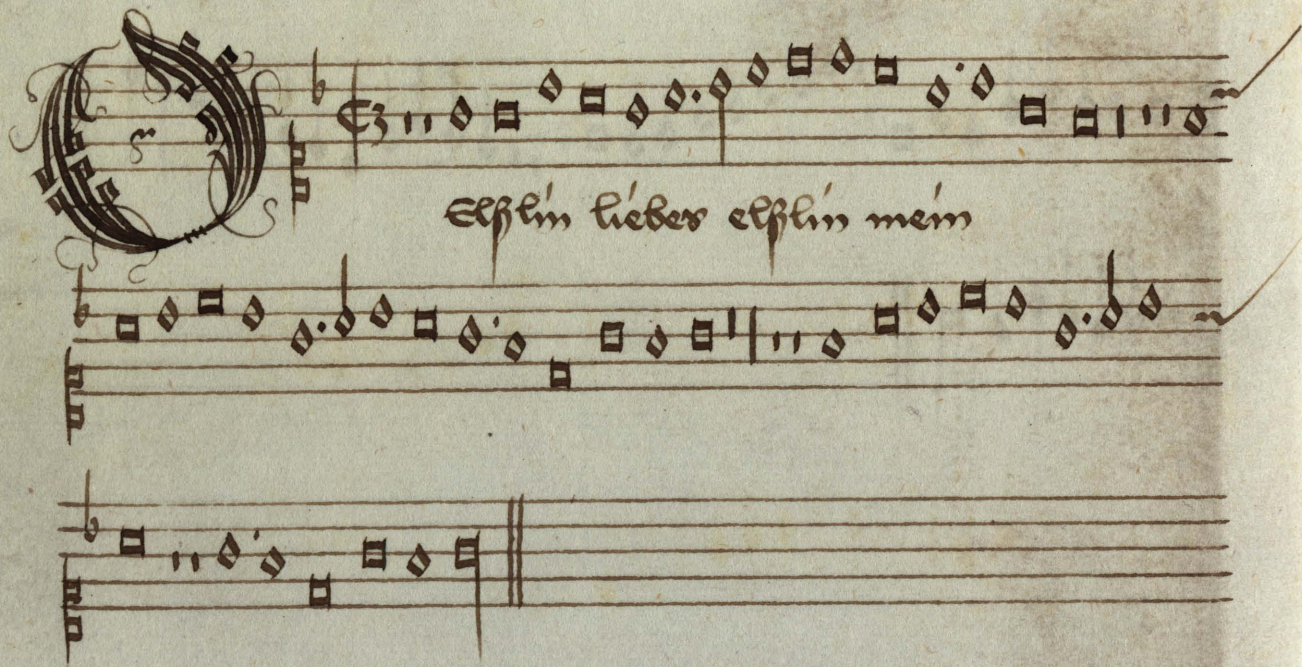 Elßlin liebes elßlin mein